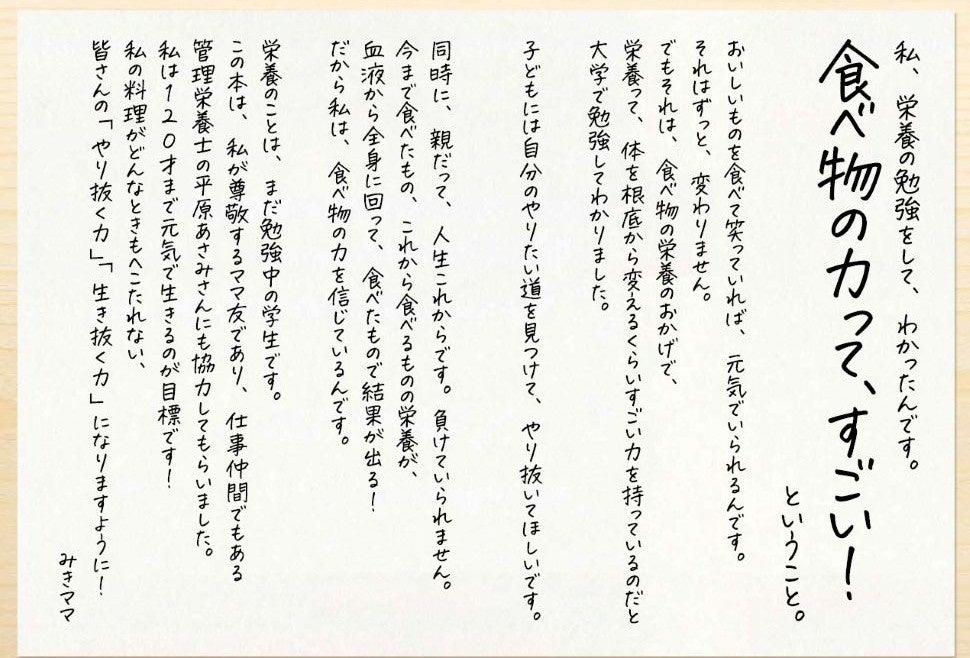 私、栄養の勉強をして、わかったんです。
食べ物の力って、すごい！
ということ。
おいしいものを食べて笑っていれば、元気でいられるんです。
それはずっと、変わりません。
でもそれは、食べ物の栄養のおかげで、
栄養って、体を根底から変えるくらいすごい力を持っているのだと
大学で勉強してわかりました。
子どもには自分のやりたい道を見つけて、やり抜いてほしいです。
同時に、親だって、人生これからです。負けていられません。
今まで食べたもの、これから食べるものの栄養が、
血液から全身に回って、食べたもので結果が出る！
だから私は、食べ物の力を信じているんです。
栄養のことは、まだ勉強中の学生です。
この本は、私が尊敬するママ友であり、仕事仲間でもある
管理栄養士の平原あさみさんにも協力してもらいました。
私は120才まで元気で生きるのが目標です！
私の料理がどんなときもへこたれない、
皆さんの「やり抜く力」「生き抜く力」になりますように！
みきママ